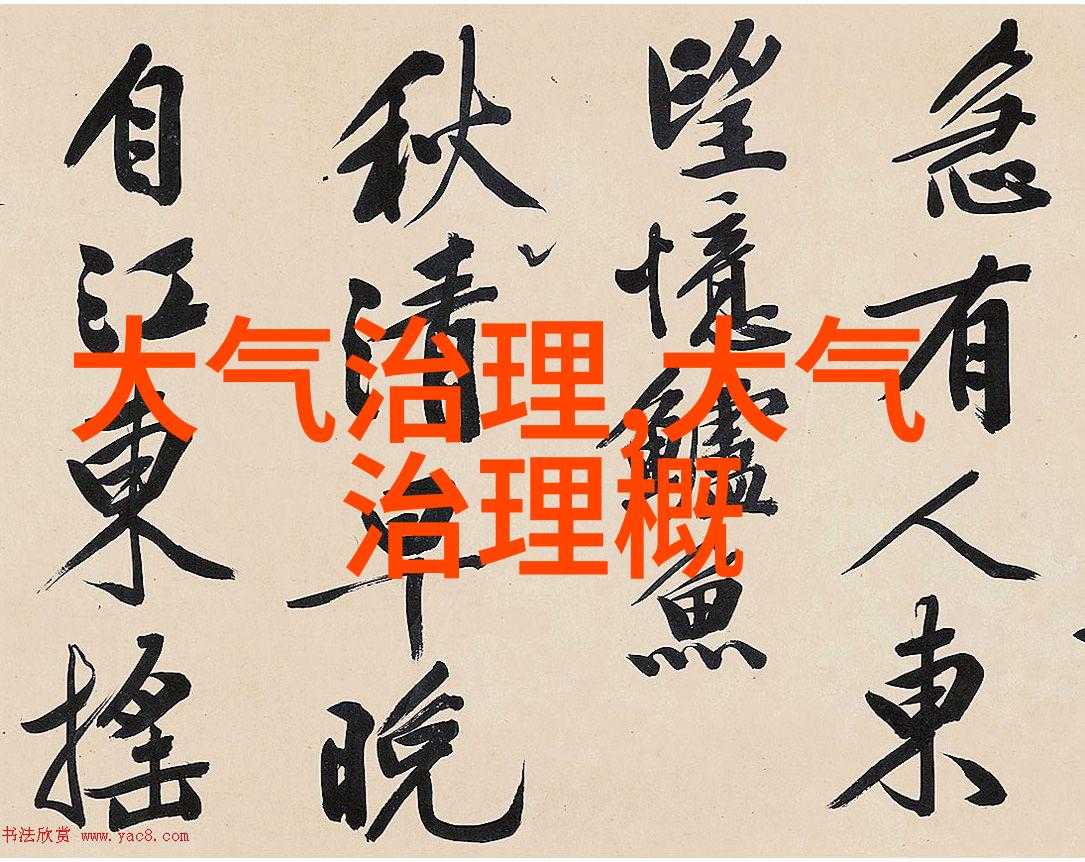 急有人東
望憶鱸魚
秋清早晚
自江東搖
大气治理,大气
治理概
书法欣赏 www.yac8.com